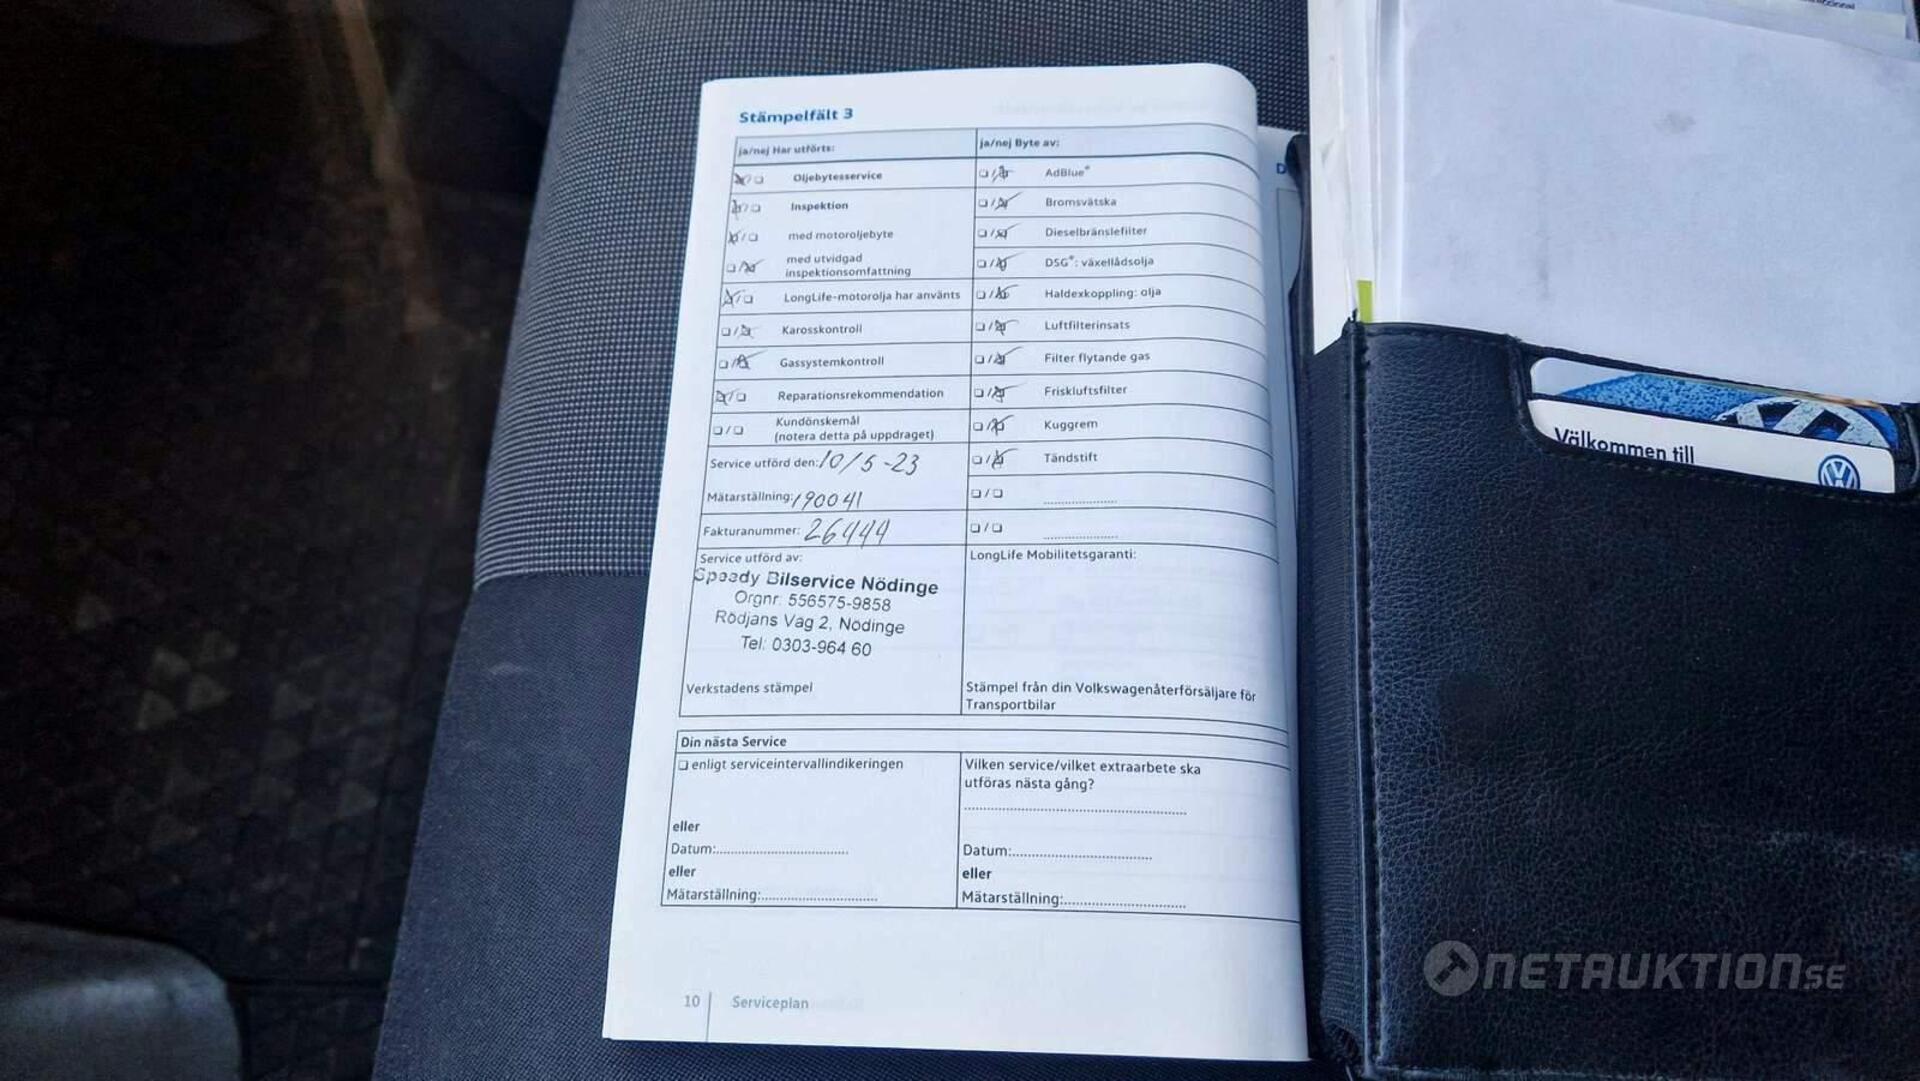 Stämpelfält 3
ja/nej Har utförts:
ja/nej Byte av:
Oljebytesservice
AdBlue®
Inspektion
Bromsvätska
med motoroljebyte
Dieselbränslefilter
med utvidgad
inspektionsomfattning
DSG®: växellådsolja
LongLife-motorolja har använts
Haldexkoppling: olja
Karosskontroll
Luftfilterinsats
Gassystemkontroll
Filter flytande gas
Reparationsrekommendation
Friskluftsfilter
Kundönskemål
(notera detta på uppdraget)
Kuggrem
Service utförd den: 10/5-23
Tändstift
Mätarställning: 190041
Fakturanummer: 26444
Service utförd av:
LongLife Mobilitetsgaranti:
Speedy Bilservice Nödinge
Orgnr: 556575-9858
Rödjans Väg 2, Nödinge
Tel: 0303-964 60
Verkstadens stämpel
Stämpel från din Volkswagenåterförsäljare för
Transportbilar
Din nästa Service
enligt serviceintervallindikeringen
Vilken service/vilket extraarbete ska
utföras nästa gång?
eller
Datum:
Datum:
eller
eller
Mätarställning:
Mätarställning:
10 Serviceplan
Välkommen till
NETAUKTION.SE